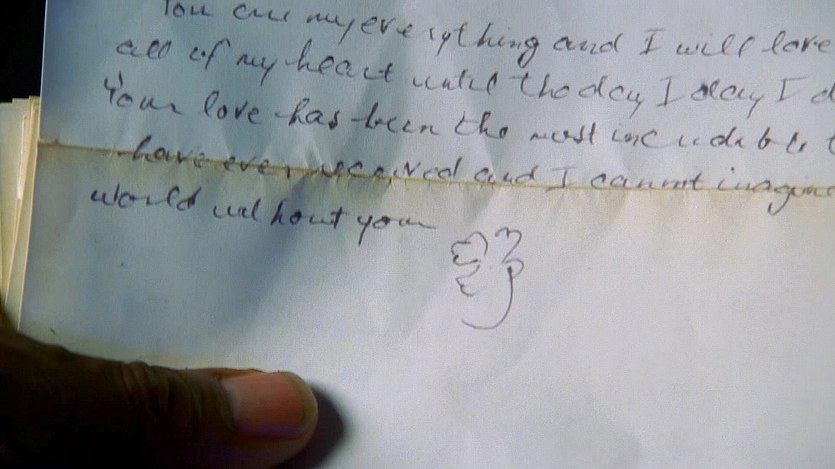 You are my everything and I will love
all of my heart until the day I day I d
Your love has been the most incredable
have ever received and I cannot imagine
world without you